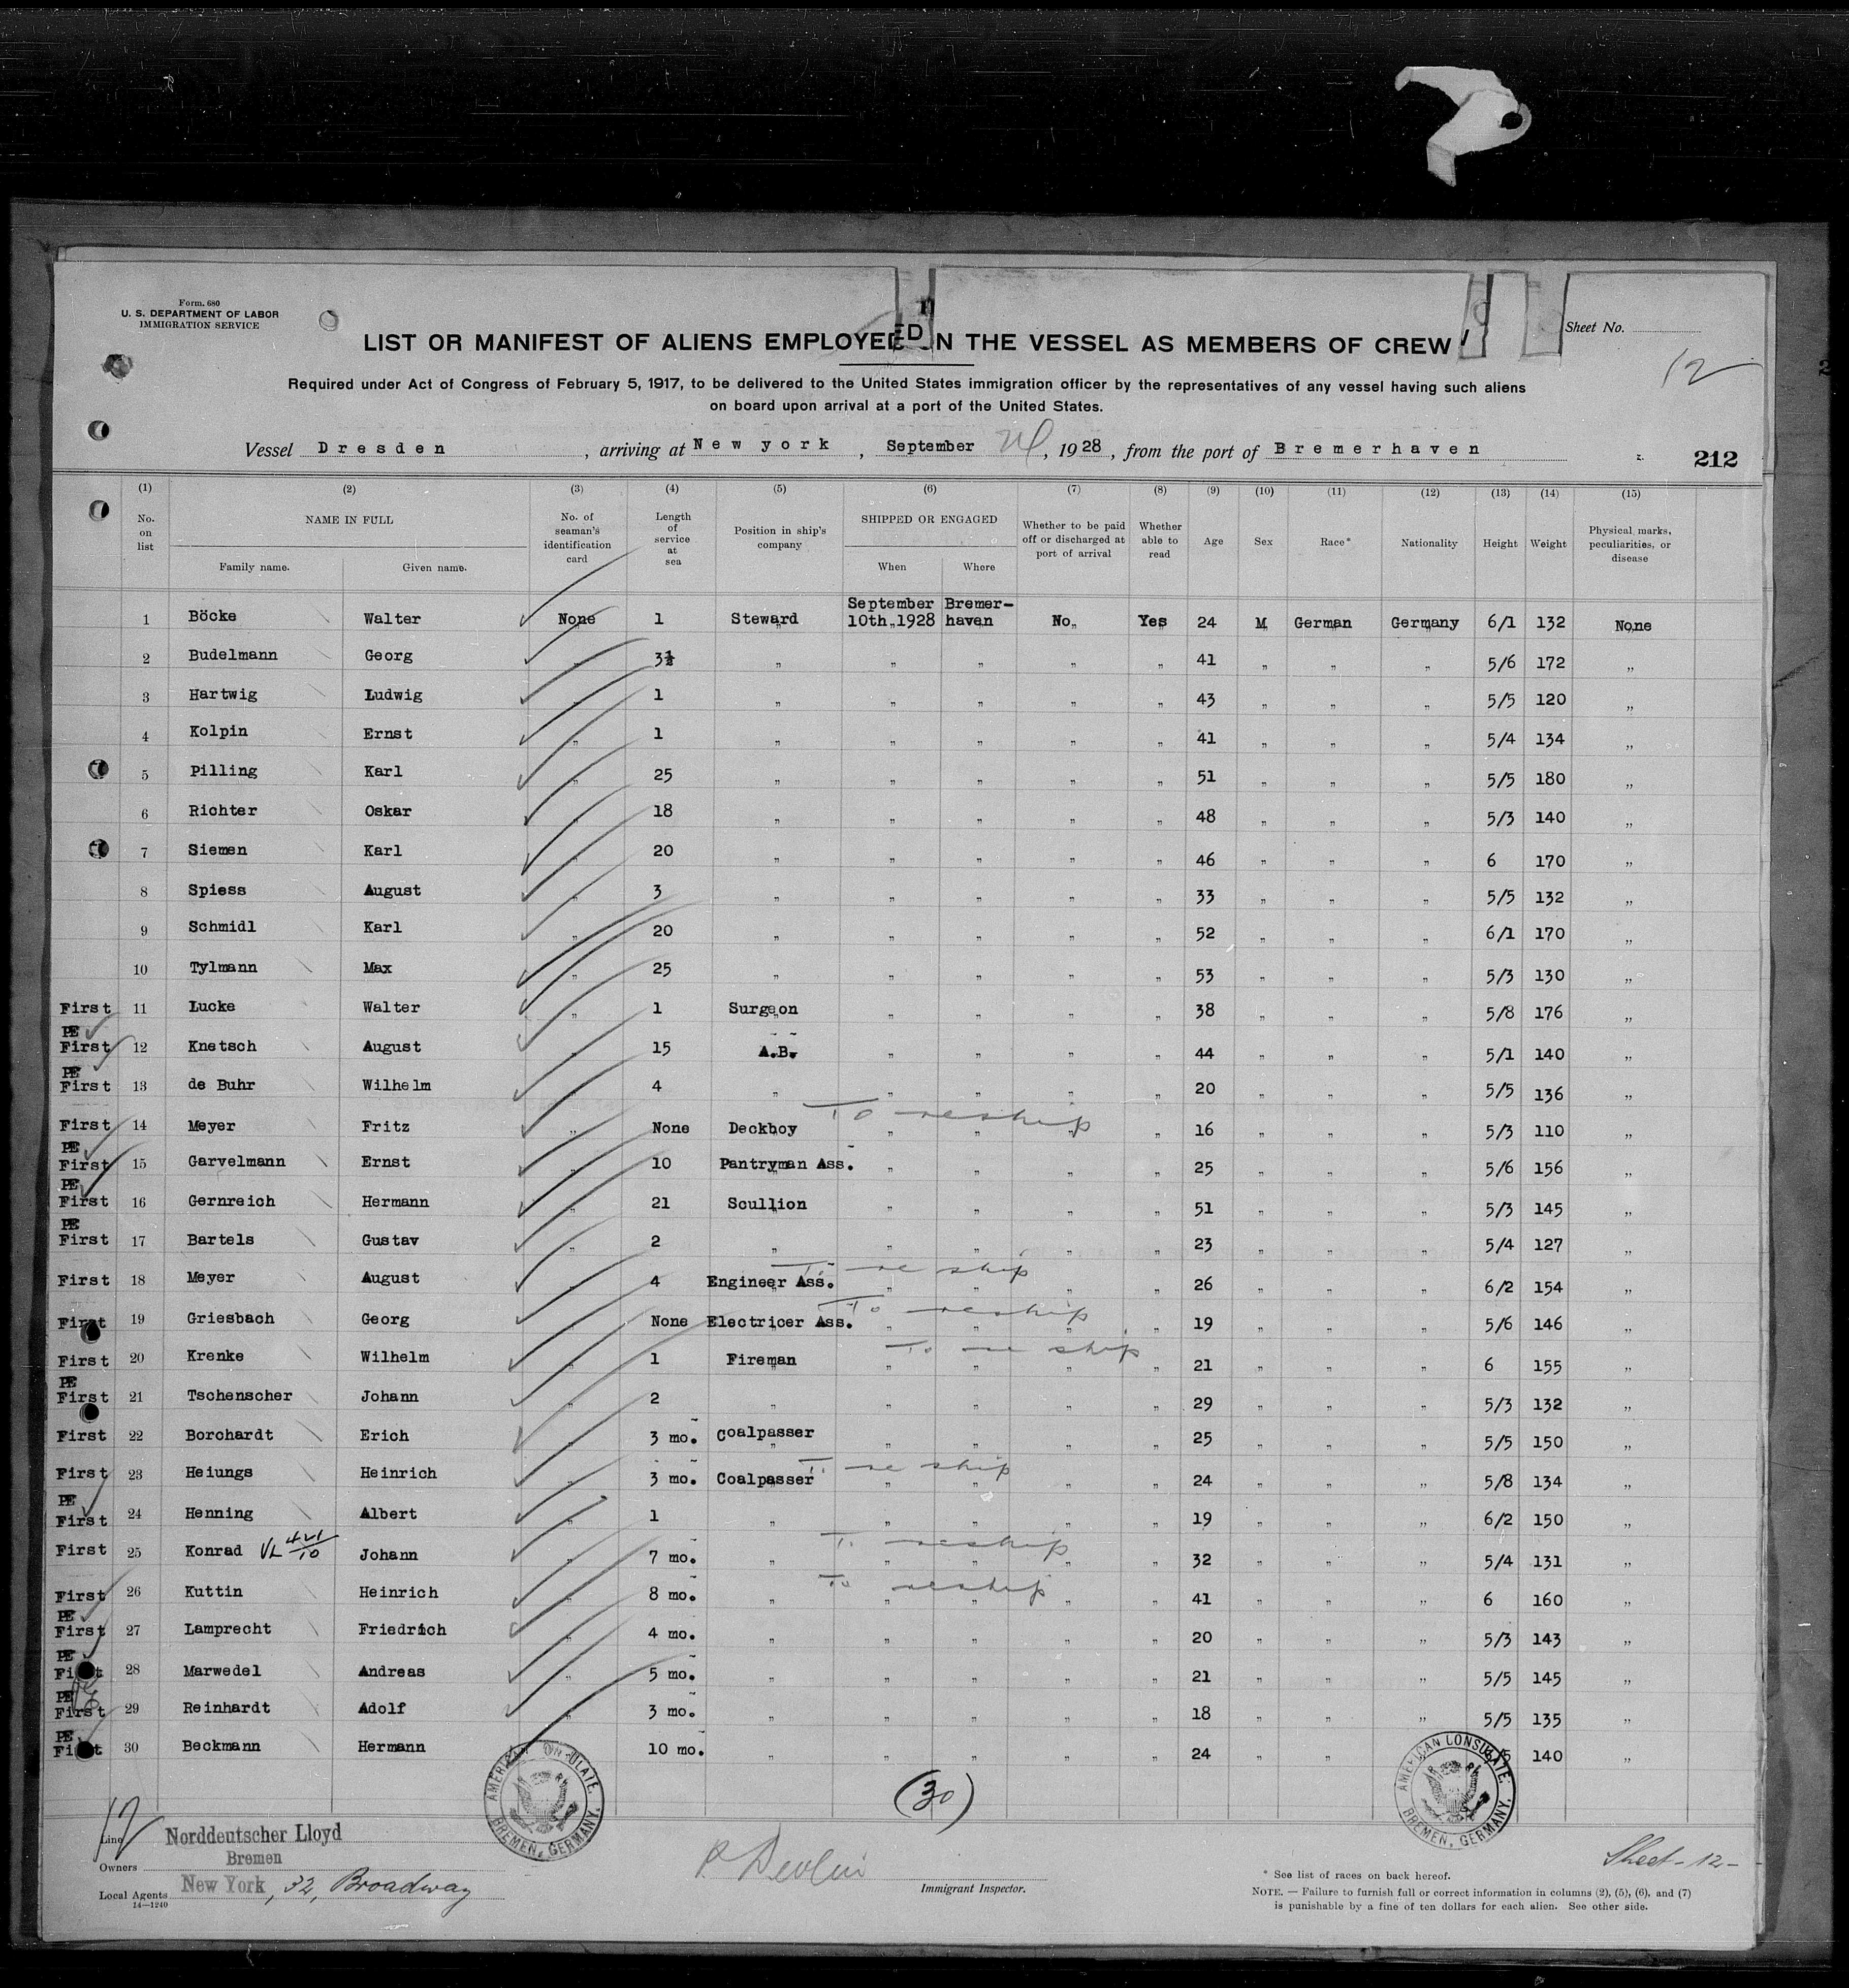 Form. 680
U. S. DEPARTMENT OF LABOR
IMMIGRATION SERVICE
Sheet No.
12
LIST OR MANIFEST OF ALIENS EMPLOYED ON THE VESSEL AS MEMBERS OF CREW
Required under Act of Congress of February 5, 1917, to be delivered to the United States immigration officer by the representatives of any vessel having such aliens
on board upon arrival at a port of the United States.
Vessel Dresden, arriving at New york, September , 1928, from the port of Bremerhaven
212
(1) (2) (3) (4) (5) (6) (7) (8) (9) (10) (11) (12) (13) (14) (15)
No. on list NAME IN FULL Family name. Given name. No. of seaman's identification card Length of service at sea Position in ship's company SHIPPED OR ENGAGED When Where Whether to be paid off or discharged at port of arrival Whether able to read Age Sex Race* Nationality Height Weight Physical marks, peculiarities, or disease
1 Böcke Walter None 1 Steward September 10th 1928 Bremer-haven No Yes 24 M German Germany 6/1 132 None
2 Budelmann Georg „ 3½ „ „ „ „ „ 41 „ „ „ 5/6 172 „
3 Hartwig Ludwig „ 1 „ „ „ „ „ 43 „ „ „ 5/5 120 „
4 Kolpin Ernst „ 1 „ „ „ „ „ 41 „ „ „ 5/4 134 „
5 Pilling Karl „ 25 „ „ „ „ „ 51 „ „ „ 5/5 180 „
6 Richter Oskar „ 18 „ „ „ „ „ 48 „ „ „ 5/3 140 „
7 Siemen Karl „ 20 „ „ „ „ „ 46 „ „ „ 6 170 „
8 Spiess August „ 3 „ „ „ „ „ 33 „ „ „ 5/5 132 „
9 Schmidl Karl „ 20 „ „ „ „ „ 52 „ „ „ 6/1 170 „
10 Tylmann Max „ 25 „ „ „ „ „ 53 „ „ „ 5/3 130 „
First 11 Lucke Walter „ 1 Surgeon „ „ „ „ 38 „ „ „ 5/8 176 „
PE
First 12 Knetsch August „ 15 A.B. „ „ „ „ 44 „ „ „ 5/1 140 „
PE
First 13 de Buhr Wilhelm „ 4 „ „ „ „ „ 20 „ „ „ 5/5 136 „
To reship
First 14 Meyer Fritz „ None Deckboy „ „ „ „ 16 „ „ „ 5/3 110 „
PE
First 15 Garvelmann Ernst „ 10 Pantryman Ass. „ „ „ „ 25 „ „ „ 5/6 156 „
PE
First 16 Gernreich Hermann „ 21 Scullion „ „ „ „ 51 „ „ „ 5/3 145 „
PE
First 17 Bartels Gustav „ 2 „ „ „ „ „ 23 „ „ „ 5/4 127 „
To reship
First 18 Meyer August „ 4 Engineer Ass. „ „ „ „ 26 „ „ „ 6/2 154 „
To reship
First 19 Griesbach Georg „ None Electricer Ass. „ „ „ „ 19 „ „ „ 5/6 146 „
To reship
First 20 Krenke Wilhelm „ 1 Fireman „ „ „ „ 21 „ „ „ 6 155 „
PE
First 21 Tschenscher Johann „ 2 „ „ „ „ „ 29 „ „ „ 5/3 132 „
First 22 Borchardt Erich „ 3 mo. Coalpasser „ „ „ „ 25 „ „ „ 5/5 150 „
To reship
First 23 Heiungs Heinrich „ 3 mo. Coalpasser „ „ „ „ 24 „ „ „ 5/8 134 „
PE
First 24 Henning Albert „ 1 „ „ „ „ „ 19 „ „ „ 6/2 150 „
To reship
First 25 Konrad Johann „ 7 mo. „ „ „ „ „ 32 „ „ „ 5/4 131 „
To reship
First 26 Kuttin Heinrich „ 8 mo. „ „ „ „ „ 41 „ „ „ 6 160 „
PE
First 27 Lamprecht Friedrich „ 4 mo. „ „ „ „ „ 20 „ „ „ 5/3 143 „
PE
First 28 Marwedel Andreas „ 5 mo. „ „ „ „ „ 21 „ „ „ 5/5 145 „
PE
First 29 Reinhardt Adolf „ 3 mo. „ „ „ „ „ 18 „ „ „ 5/5 135 „
PE
First 30 Beckmann Hermann 10 mo. „ „ „ „ „ 24 „ „ 140 „
(30)
AMERICAN CONSULATE. BREMEN, GERMANY.
AMERICAN CONSULATE. BREMEN, GERMANY.
12
Line Norddeutscher Lloyd
Owners Bremen
Local Agents New York, 32, Broadway
14—1240
P Devlin
Immigrant Inspector.
Sheet - 12 -
* See list of races on back hereof.
NOTE. — Failure to furnish full or correct information in columns (2), (5), (6), and (7)
is punishable by a fine of ten dollars for each alien. See other side.